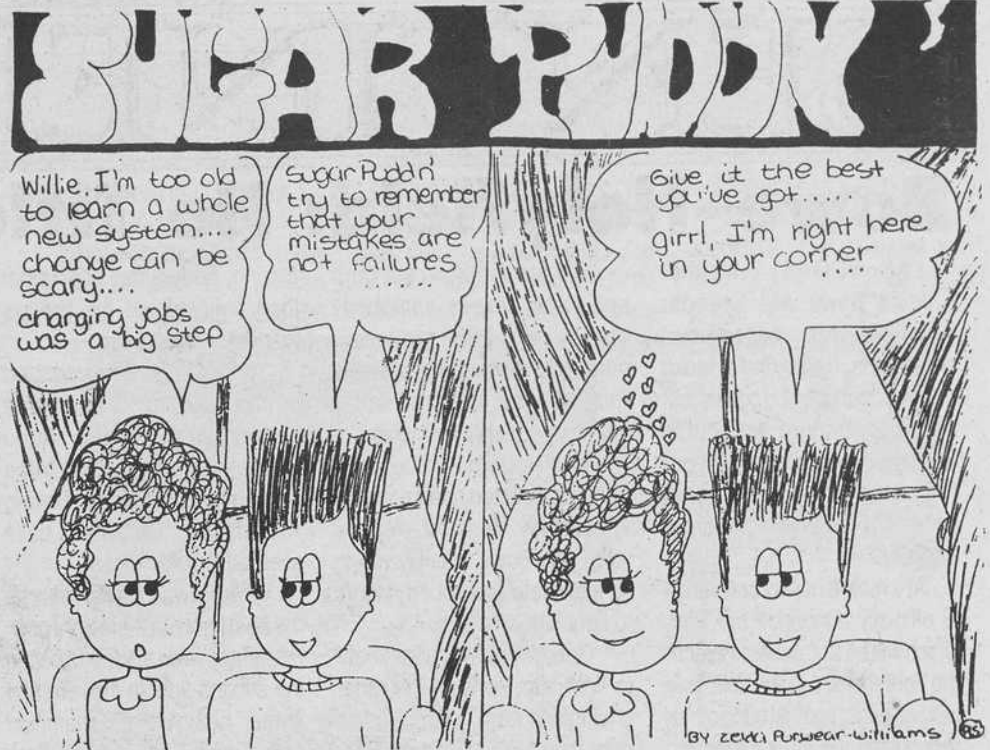 SUGAR PUDDN'
Willie, I'm too old
to learn a whole
new system....
change can be
scary...
changing jobs
was a big step
Sugar Puddn'
try to remember
that your
mistakes are
not failures
....
Give it the best
you've got.....
girrl, I'm right here
in your corner
BY Zeldi Purwear-Williams